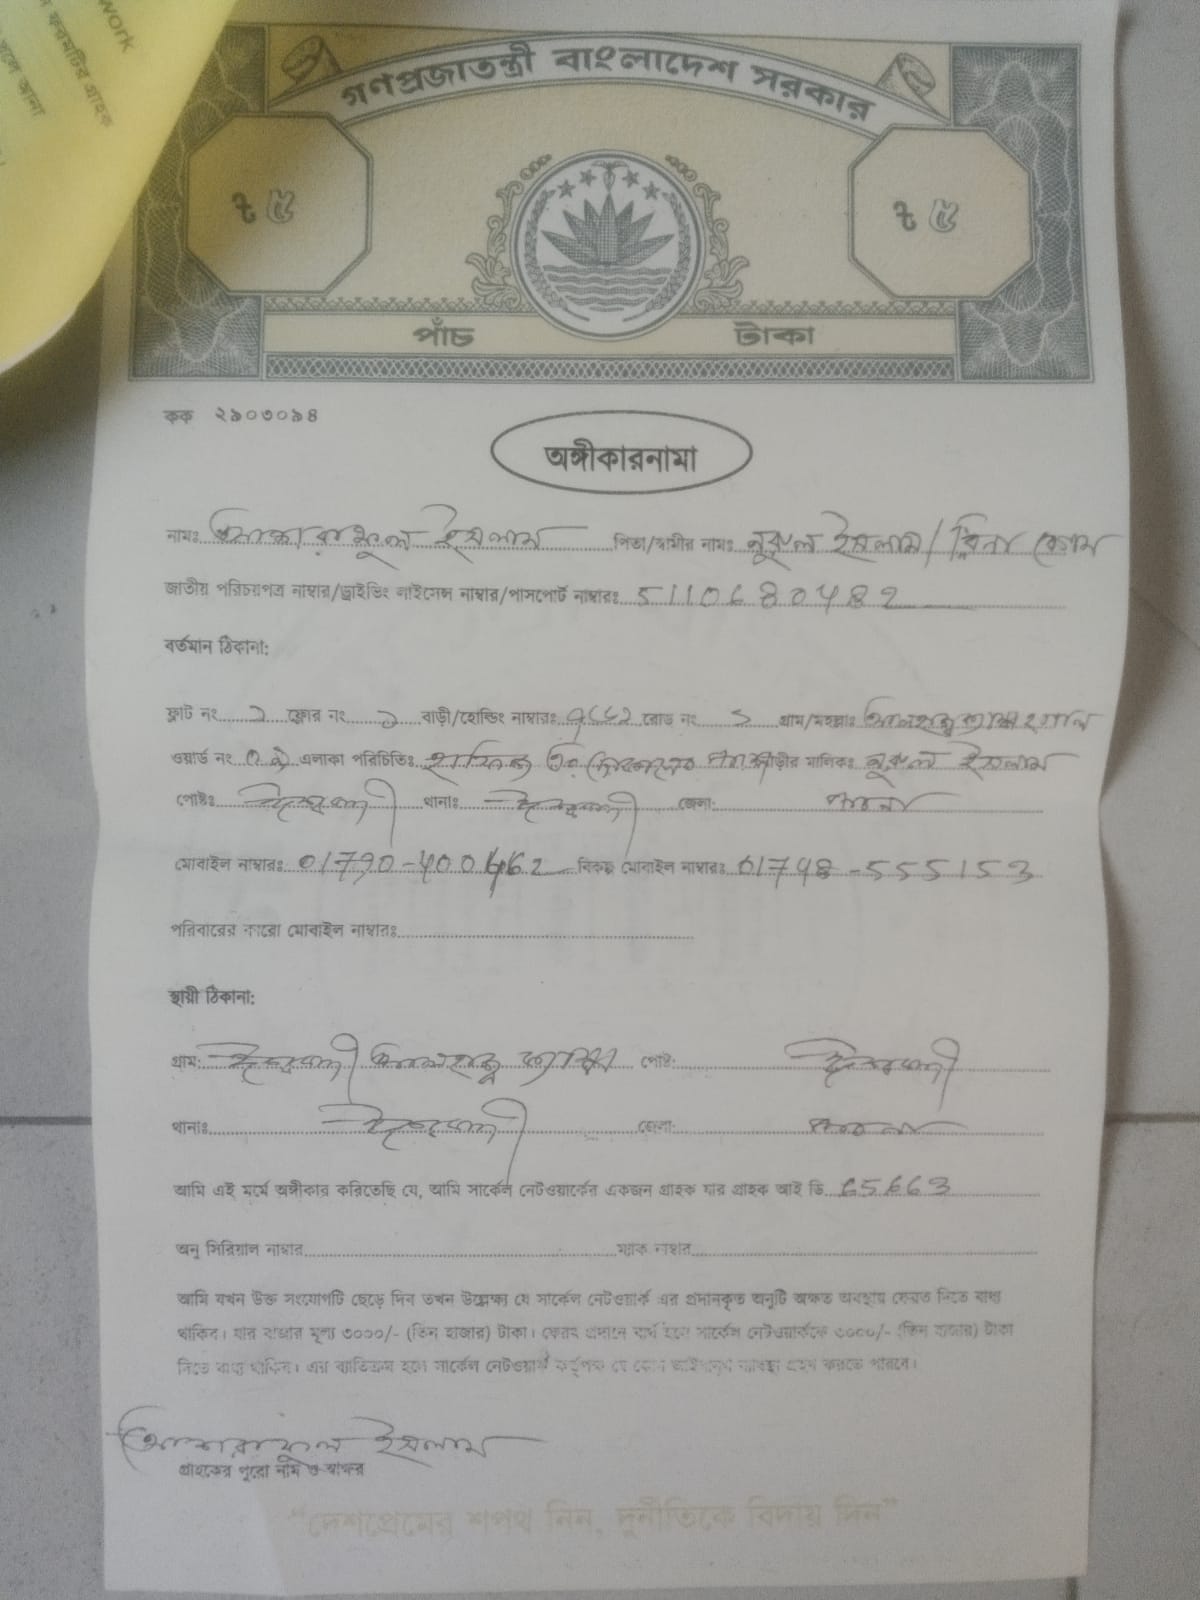 work
গণপ্রজাতন্ত্রী বাংলাদেশ সরকার
৳ ৫ ৳ ৫
পাঁচ টাকা
কক ২৯০৩০৯৪
অঙ্গীকারনামা
নামঃ ইসলাম পিতা/স্বামীর নামঃ নুরুল ইসলাম/
জাতীয় পরিচয়পত্র নাম্বার/ড্রাইভিং লাইসেন্স নাম্বার/পাসপোর্ট নাম্বারঃ 5110680482
বর্তমান ঠিকানা:
ফ্লাট নং ফ্লোর নং বাড়ী/হোল্ডিং নাম্বারঃ রোড নং গ্রাম/মহল্লাঃ
ওয়ার্ড নং এলাকা পরিচিতিঃ বাড়ীর মালিকঃ নুরুল ইসলাম
পোষ্টঃ ঈশ্বরদী থানাঃ ঈশ্বরদী জেলা: পাবনা
মোবাইল নাম্বারঃ 01790-400462 বিকল্প মোবাইল নাম্বারঃ 01748-555153
পরিবারের কারো মোবাইল নাম্বারঃ
স্থায়ী ঠিকানা:
গ্রাম: ঈশ্বরদী পোষ্ট: ঈশ্বরদী
থানাঃ ঈশ্বরদী জেলা: পাবনা
আমি এই মর্মে অঙ্গীকার করিতেছি যে, আমি সার্কেল নেটওয়ার্কের একজন গ্রাহক যার গ্রাহক আই ডি 65663
অনু সিরিয়াল নাম্বার ম্যাক নাম্বার
আমি যখন উক্ত সংযোগটি ছেড়ে দিব তখন উল্লেখ্য যে সার্কেল নেটওয়ার্ক এর প্রদানকৃত অনুটি অক্ষত অবস্থায় ফেরত দিতে বাধ্য
থাকিব। যার বাজার মূল্য ৩০০০/- (তিন হাজার) টাকা। ফেরৎ প্রদানে ব্যর্থ হলে সার্কেল নেটওয়ার্ককে ৩০০০/- (তিন হাজার) টাকা
দিতে বাধ্য থাকিব। এর ব্যতিক্রম হলে সার্কেল নেটওয়ার্ক কর্তৃপক্ষ যে কোন আইনানুগ ব্যবস্থা গ্রহণ করতে পারবে।
আশরাফুল ইসলাম
গ্রাহকের পুরো নাম ও স্বাক্ষর
"দেশপ্রেমের শপথ নিন, দুর্নীতিকে বিদায় দিন"